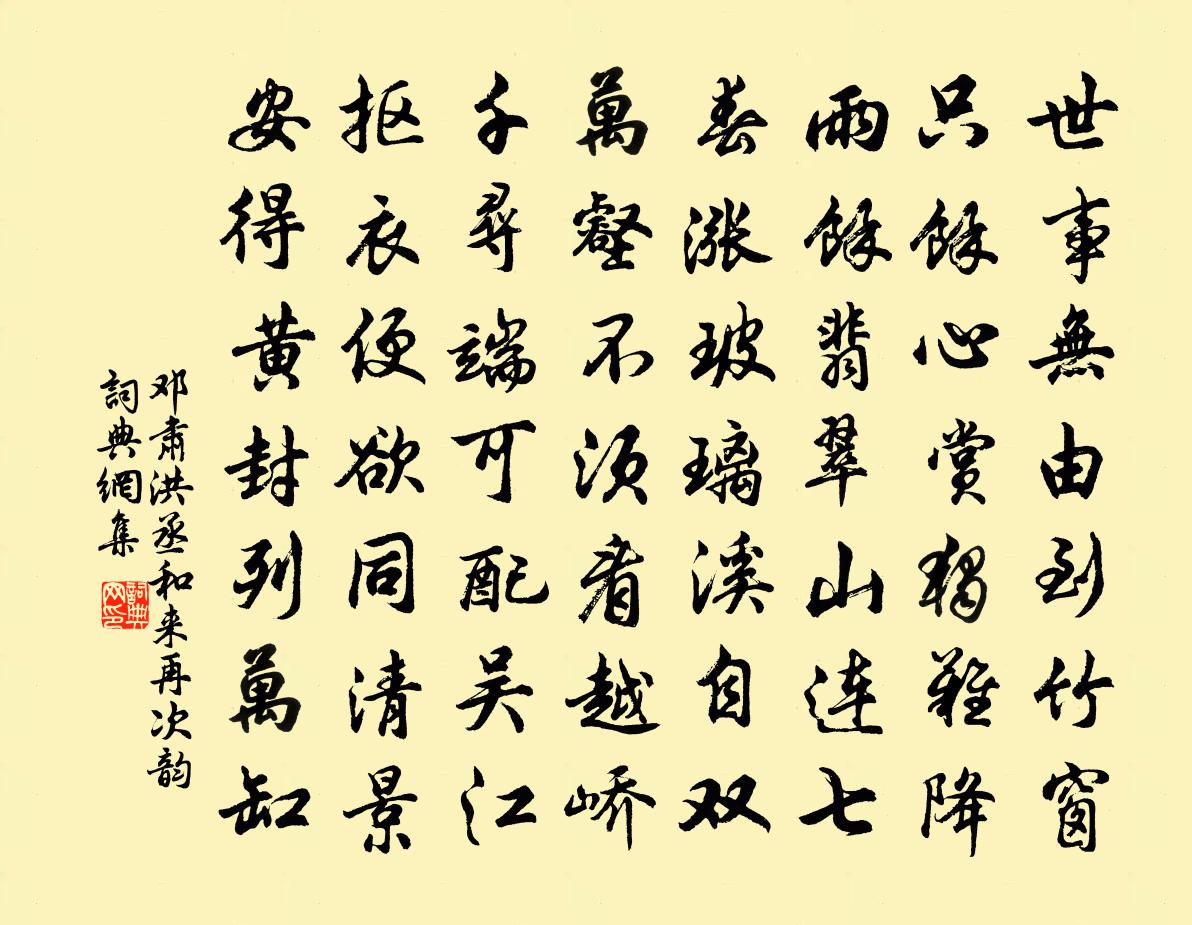 世事無由到竹窗
只餘心賞獨難降
雨餘翡翠山連七
春漲玻璃溪自双
萬壑不須看越嶠
千尋端可配吴江
抠衣便欲同清景
安得黄封列萬缸
邓肅洪丞和来再次韵
詞典網集
詞典网印